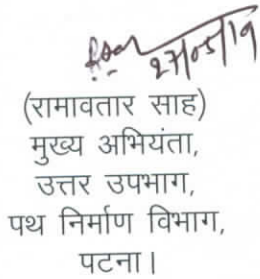 27/05/19
(रामावतार साह)
मुख्य अभियंता,
उत्तर उपभाग,
पथ निर्माण विभाग,
पटना।